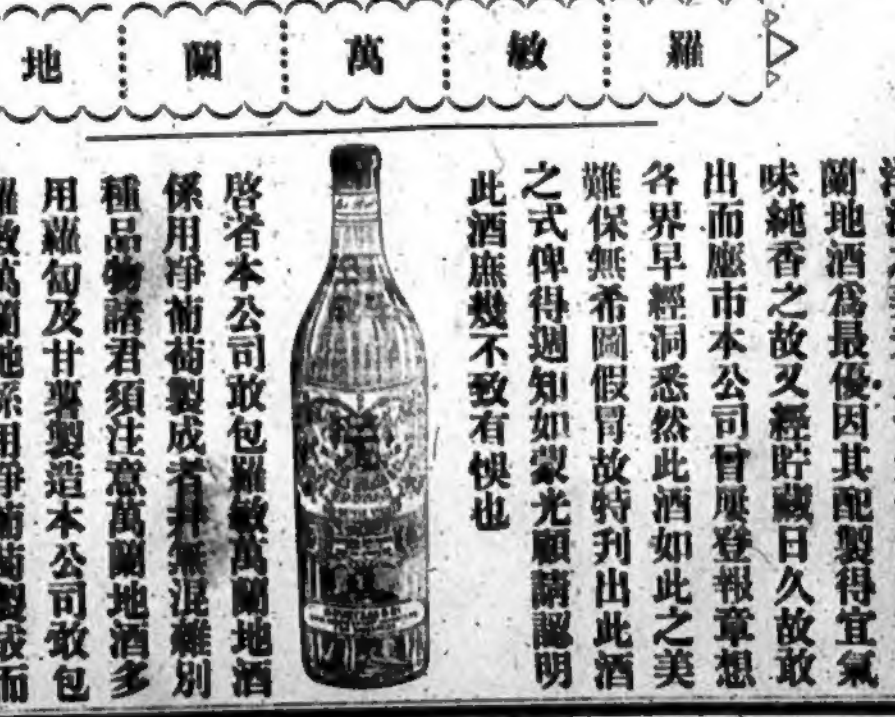 羅敏萬蘭地
蘭地酒爲最優因其配製得宜氣
味純香之故又經貯藏日久故敢
出而應市本公司曾屢登報章想
各界早經洞悉然此酒如此之美
難保無希圖假冒故特刋出此酒
之式俾得週知如蒙光顧請認明
此酒庶幾不致有悞也
啓者本公司敢包羅敏萬蘭地酒
係用淨葡萄製成者并無混雜別
種品物諸君須注意萬蘭地酒多
用蘿匐及甘薯製造本公司敢包
羅敏萬蘭地係用淨葡萄製成而